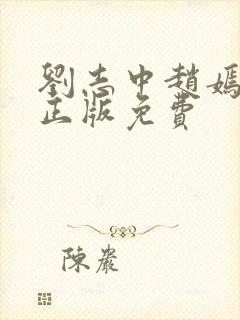 劉志中趙媽
正版免費
陳嚴